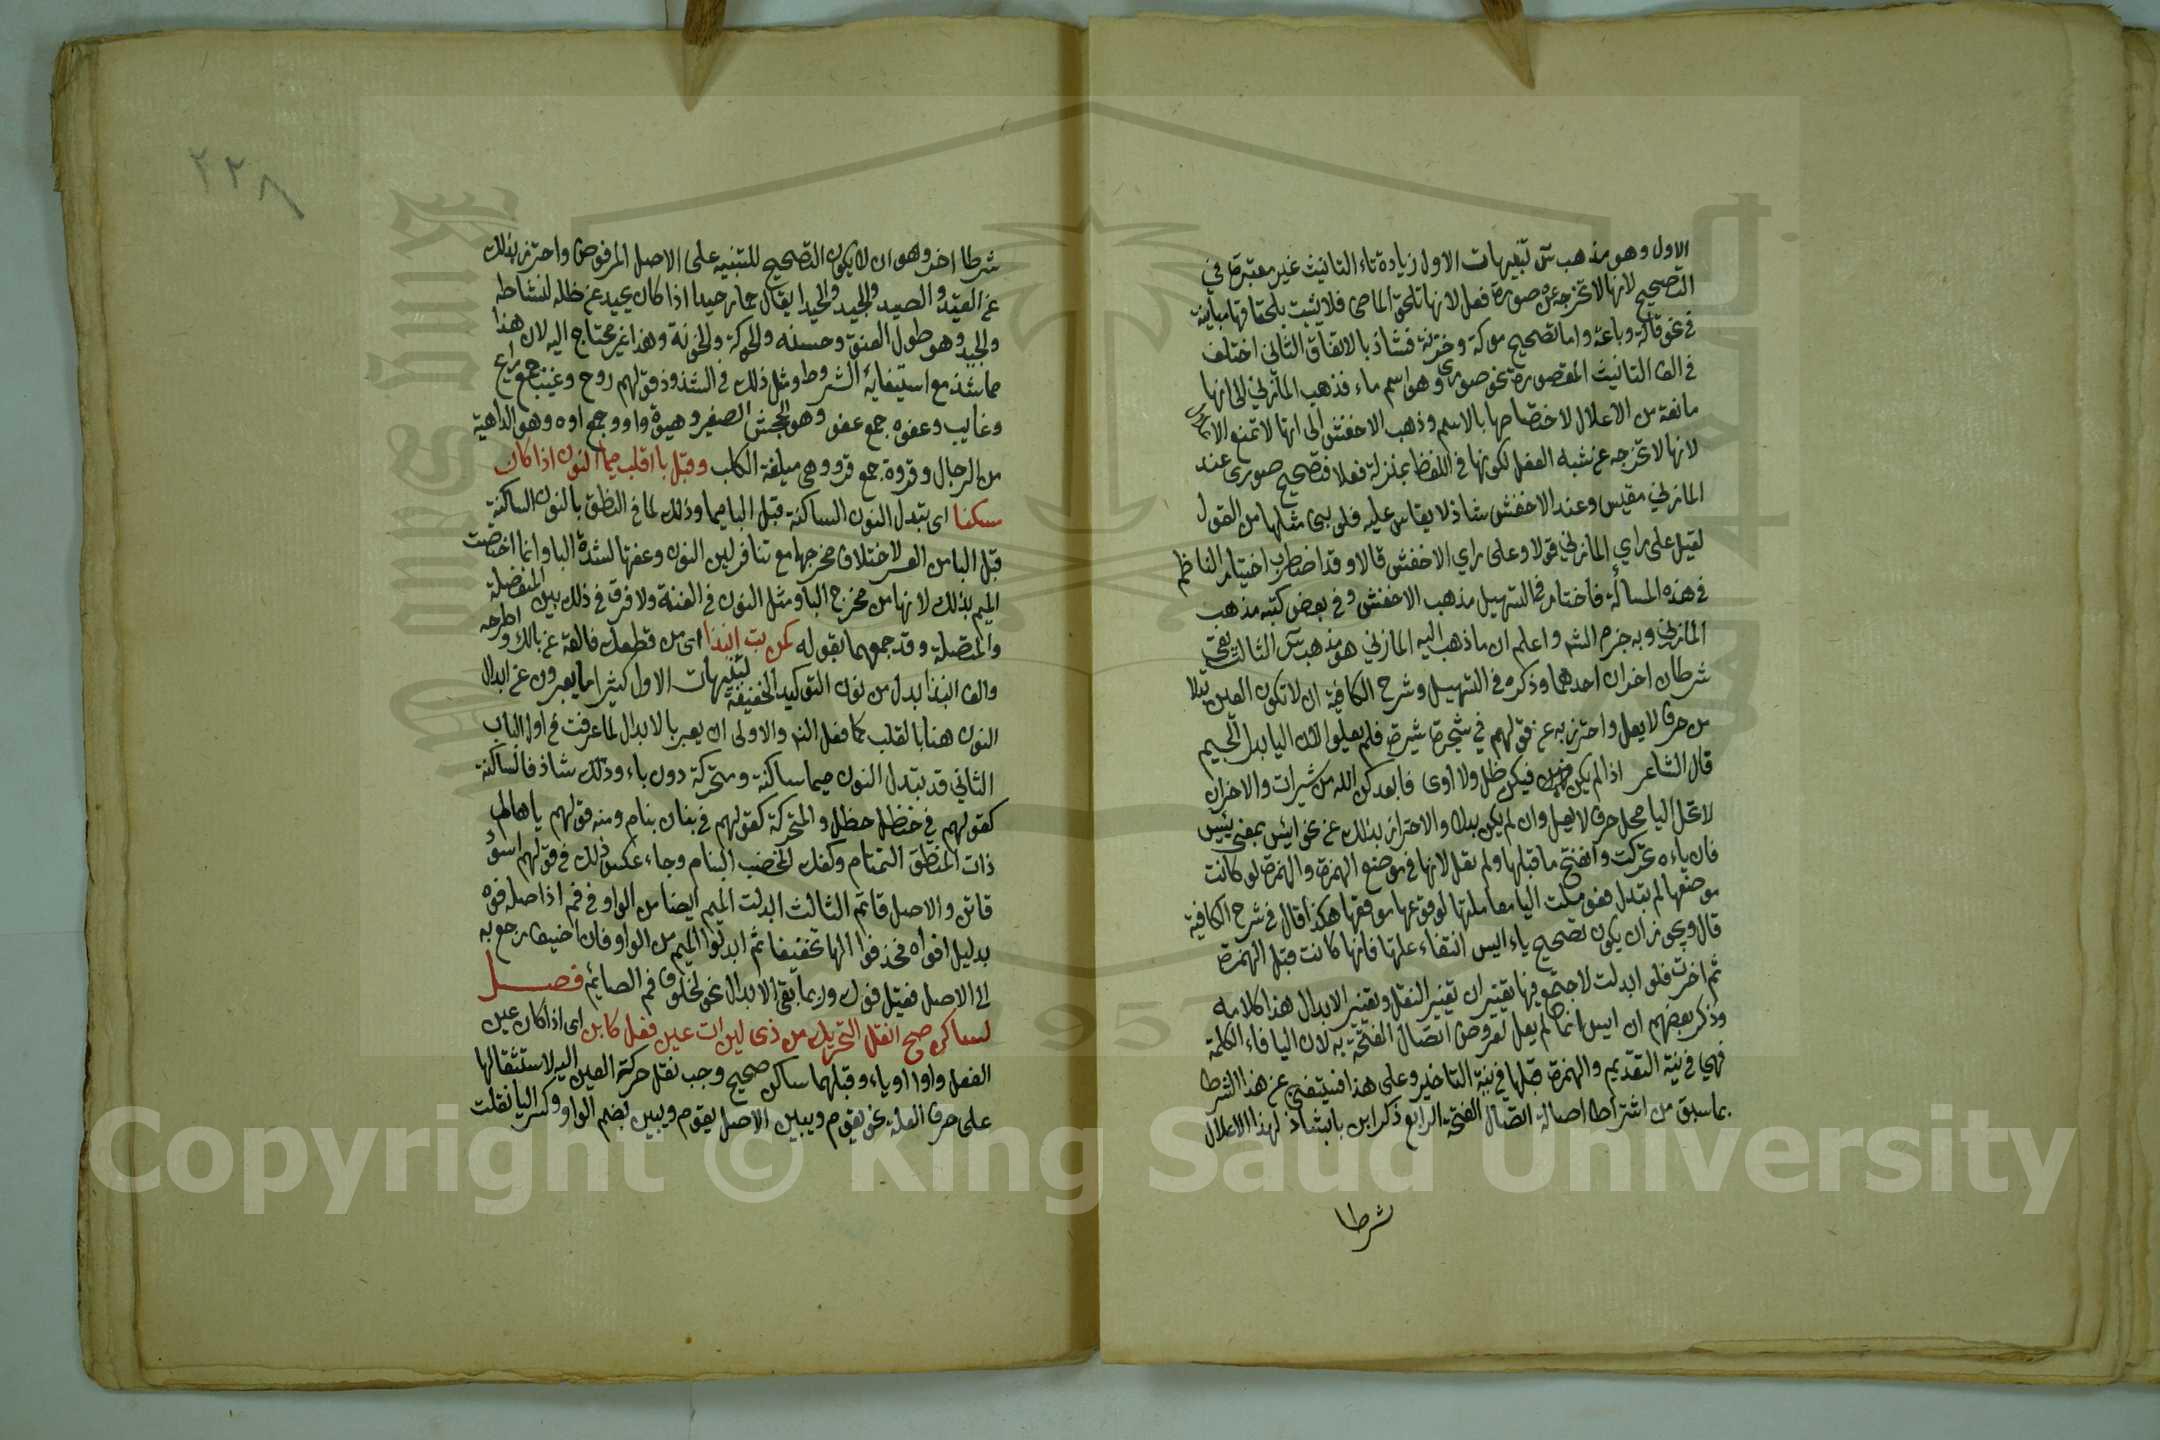 الاول وهو مذهب س تنبيهات الاول زيادة تاء التانيث غير معتبرة في
التصحيح لانها لا تخرجه عن صورة فعل لانها تلحق الماضى فلا يثبت بلحاقها مباينة
في نحو قالة وباعة واما تصحيح حوكة وخونة فشاذ بالاتفاق الثاني اختلف
في الف التانيث المقصورة نحو صورى وهو اسم ماء فذهب المازني الى انها
مانعة من الاعلال لاختصاصها بالاسم وذهب الاخفش الى انها لا تمنع الاعلال
لانها لا تخرجه عن شبه الفعل لكونها في اللفظ بمنزلة فعلا فتصحيح صورى عند
المازني مقيس وعند الاخفش شاذ لا يقاس عليه فلو بنى مثلها من القول
لقيل على راي المازني قولا وعلى راي الاخفش قالا وقد اضطرب اختيار الناظم
في هذه المسألة فاختار في التسهيل مذهب الاخفش وفي بعض كتبه مذهب
المازني وبه جزم الش واعلم ان ما ذهب اليه المازني هو مذهب س الثالث بقى
شرطان اخران احدهما وذكره في التسهيل وشرح الكافية ان لا تكون العين بدلا
من حرف لا يعل واحترز به عن قولهم في شجرة شيرة فلم يعلوا لان اليا بدل الجيم
قال الشاعر اذا لم يكن فيكن ظل ولا اوى فابعدكن الله من شيرات والاخر ان
لا تحل اليا محل حرف لا يعل وان لم يكن بدلا والاحتراز بذلك عن نحو ايس بمعنى يئس
فان ياءه تحركت وانفتح ما قبلها ولم تعل لانها في موضع الهمزة والهمزة لو كانت
موضعها لم تبدل فعوملت اليا معاملتها لوقوعها موقعها هكذا قال في شرح الكافية
قال ويجوز ان يكون تصحيح ياء ايس انتفاء علتها فانها كانت قبل الهمزة
ثم اخرت فلو ابدلت لاجتمع فيها تغييران تغيير النقل وتغيير الابدال هذا كلامه
وذكر بعضهم ان ايس انما لم يعل لعروض اتصال الفتحة به لان اليا فاء الكلمة
فهي في نية التقديم والهمزة قبلها في نية التاخير وعلى هذا فيستغنى عن هذا الشرط
بما سبق من اشتراط اصالة اتصال الفتحة الرابع ذكر ابن بابشاذ لهذا الاعلال
شرطا
٢٢٨
شرطا اخر وهو ان لا يكون التصحيح للتنبيه على الاصل المرفوض واحترز بذلك
عن القود والصيد والجيد والحيدا يقال حمار حيدا اذا كان يحيد عن ظله لنشاطه
والجيد وهو طول العنق وحسنه والحوكة والخونة وهذا غير محتاج اليه لان هذا
مما شذ مع استيفائه الشروط ومثل ذلك في الشذوذ قولهم روح وغيب جمع رايح
وغايب وعفوه جمع عفو وهو الجحش الصغير وهيوة واوو جمع اوه وهو الداهية
من الرجال وقروة جمع قرو وهي ميلغة الكلب وقبل با اقلب ميما النون اذا كان
مسكنا اى تبدل النون الساكنة قبل البا ميما وذلك لما في النطق بالنون الساكنة
قبل البا من العسر لاختلاف مخرجها مع تنافر لين النون وغنتها لشدة البا وانما اختصت
الميم بذلك لانها من مخرج البا ومثل النون في الغنة ولا فرق في ذلك بين المنفصلة
والمتصلة وقد جمعهما بقوله كمن بت انبذا اى من قطعك فالقه عن بالك واطرحه
والف انبذا بدل من نون التوكيد الخفيفة تنبيهات الاول كثيرا ما يعبرون عن ابدال
النون هنا بالقلب كما فعل الناظم والاولى ان يعبر بالابدال لما عرفت في اول الباب
الثاني قد تبدل النون ميما ساكنة ومتحركة دون باء وذلك شاذ فالساكنة
كقولهم في حنظل حمظل والمتحركة كقولهم في بنان بنام ومنه قولهم يا هال
ذات المنطق التمتام وكفك المخضب البنام وجاء عكس ذلك في قولهم اسود
قاتن والاصل قاتم الثالث ابدلت الميم ايضا من الواو في فم اذ اصله فوه
بدليل افواه فحذفوا الها تخفيفا ثم ابدلوا الميم من الواو فان اضيف رجع به
الى الاصل فقيل فوك وربما بقى الابدال نحو لخلوف فم الصايم فصل
لساكن صح انقل التحريك من ذى لين ات عين فعل كابن اى اذا كان عين
الفعل واوا او ياء وقبلهما ساكن صحيح وجب نقل حركة العين اليه لاستثقالها
على حرف العلة نحو يقوم ويبين الاصل يقوم ويبين بضم الواو وكسر اليا نقلت
Copyright © King Saud University
King Saud University
1957